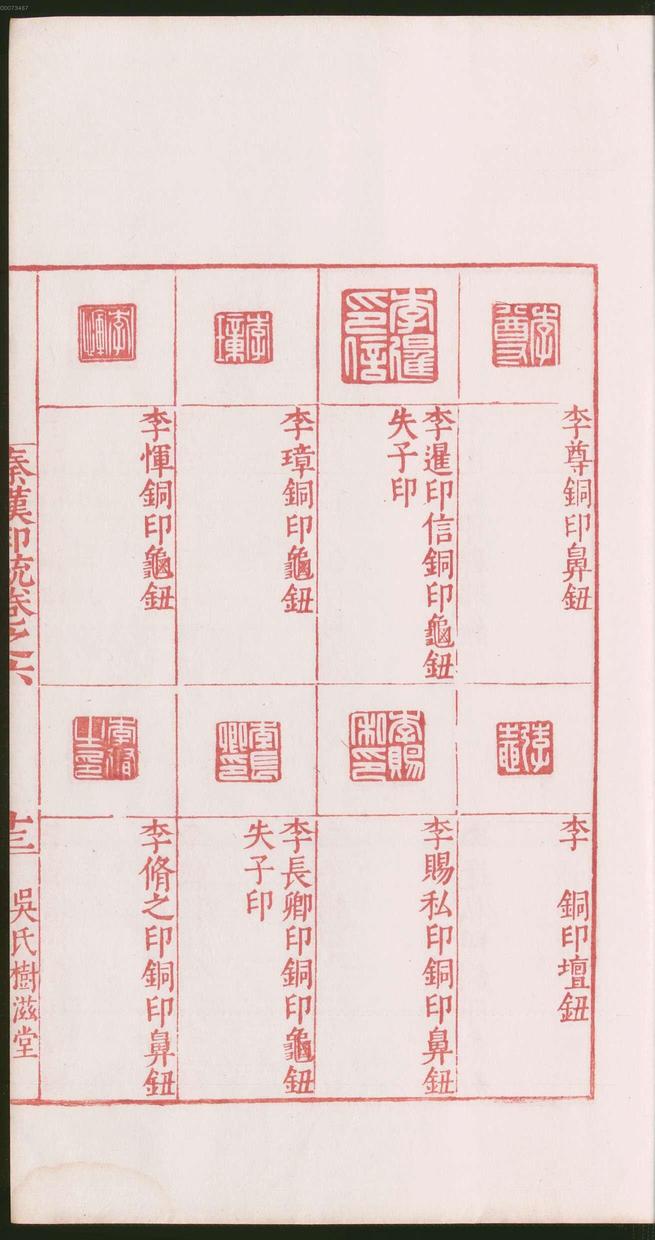 李尊銅印鼻鈕
李暹印信銅印龜鈕
失子印
李璋銅印龜鈕
李惲銅印龜鈕
李　銅印壇鈕
李賜私印銅印鼻鈕
李長卿印銅印龜鈕
失子印
李脩之印銅印鼻鈕
秦漢印統卷之六
十三
吳氏樹滋堂
00073467